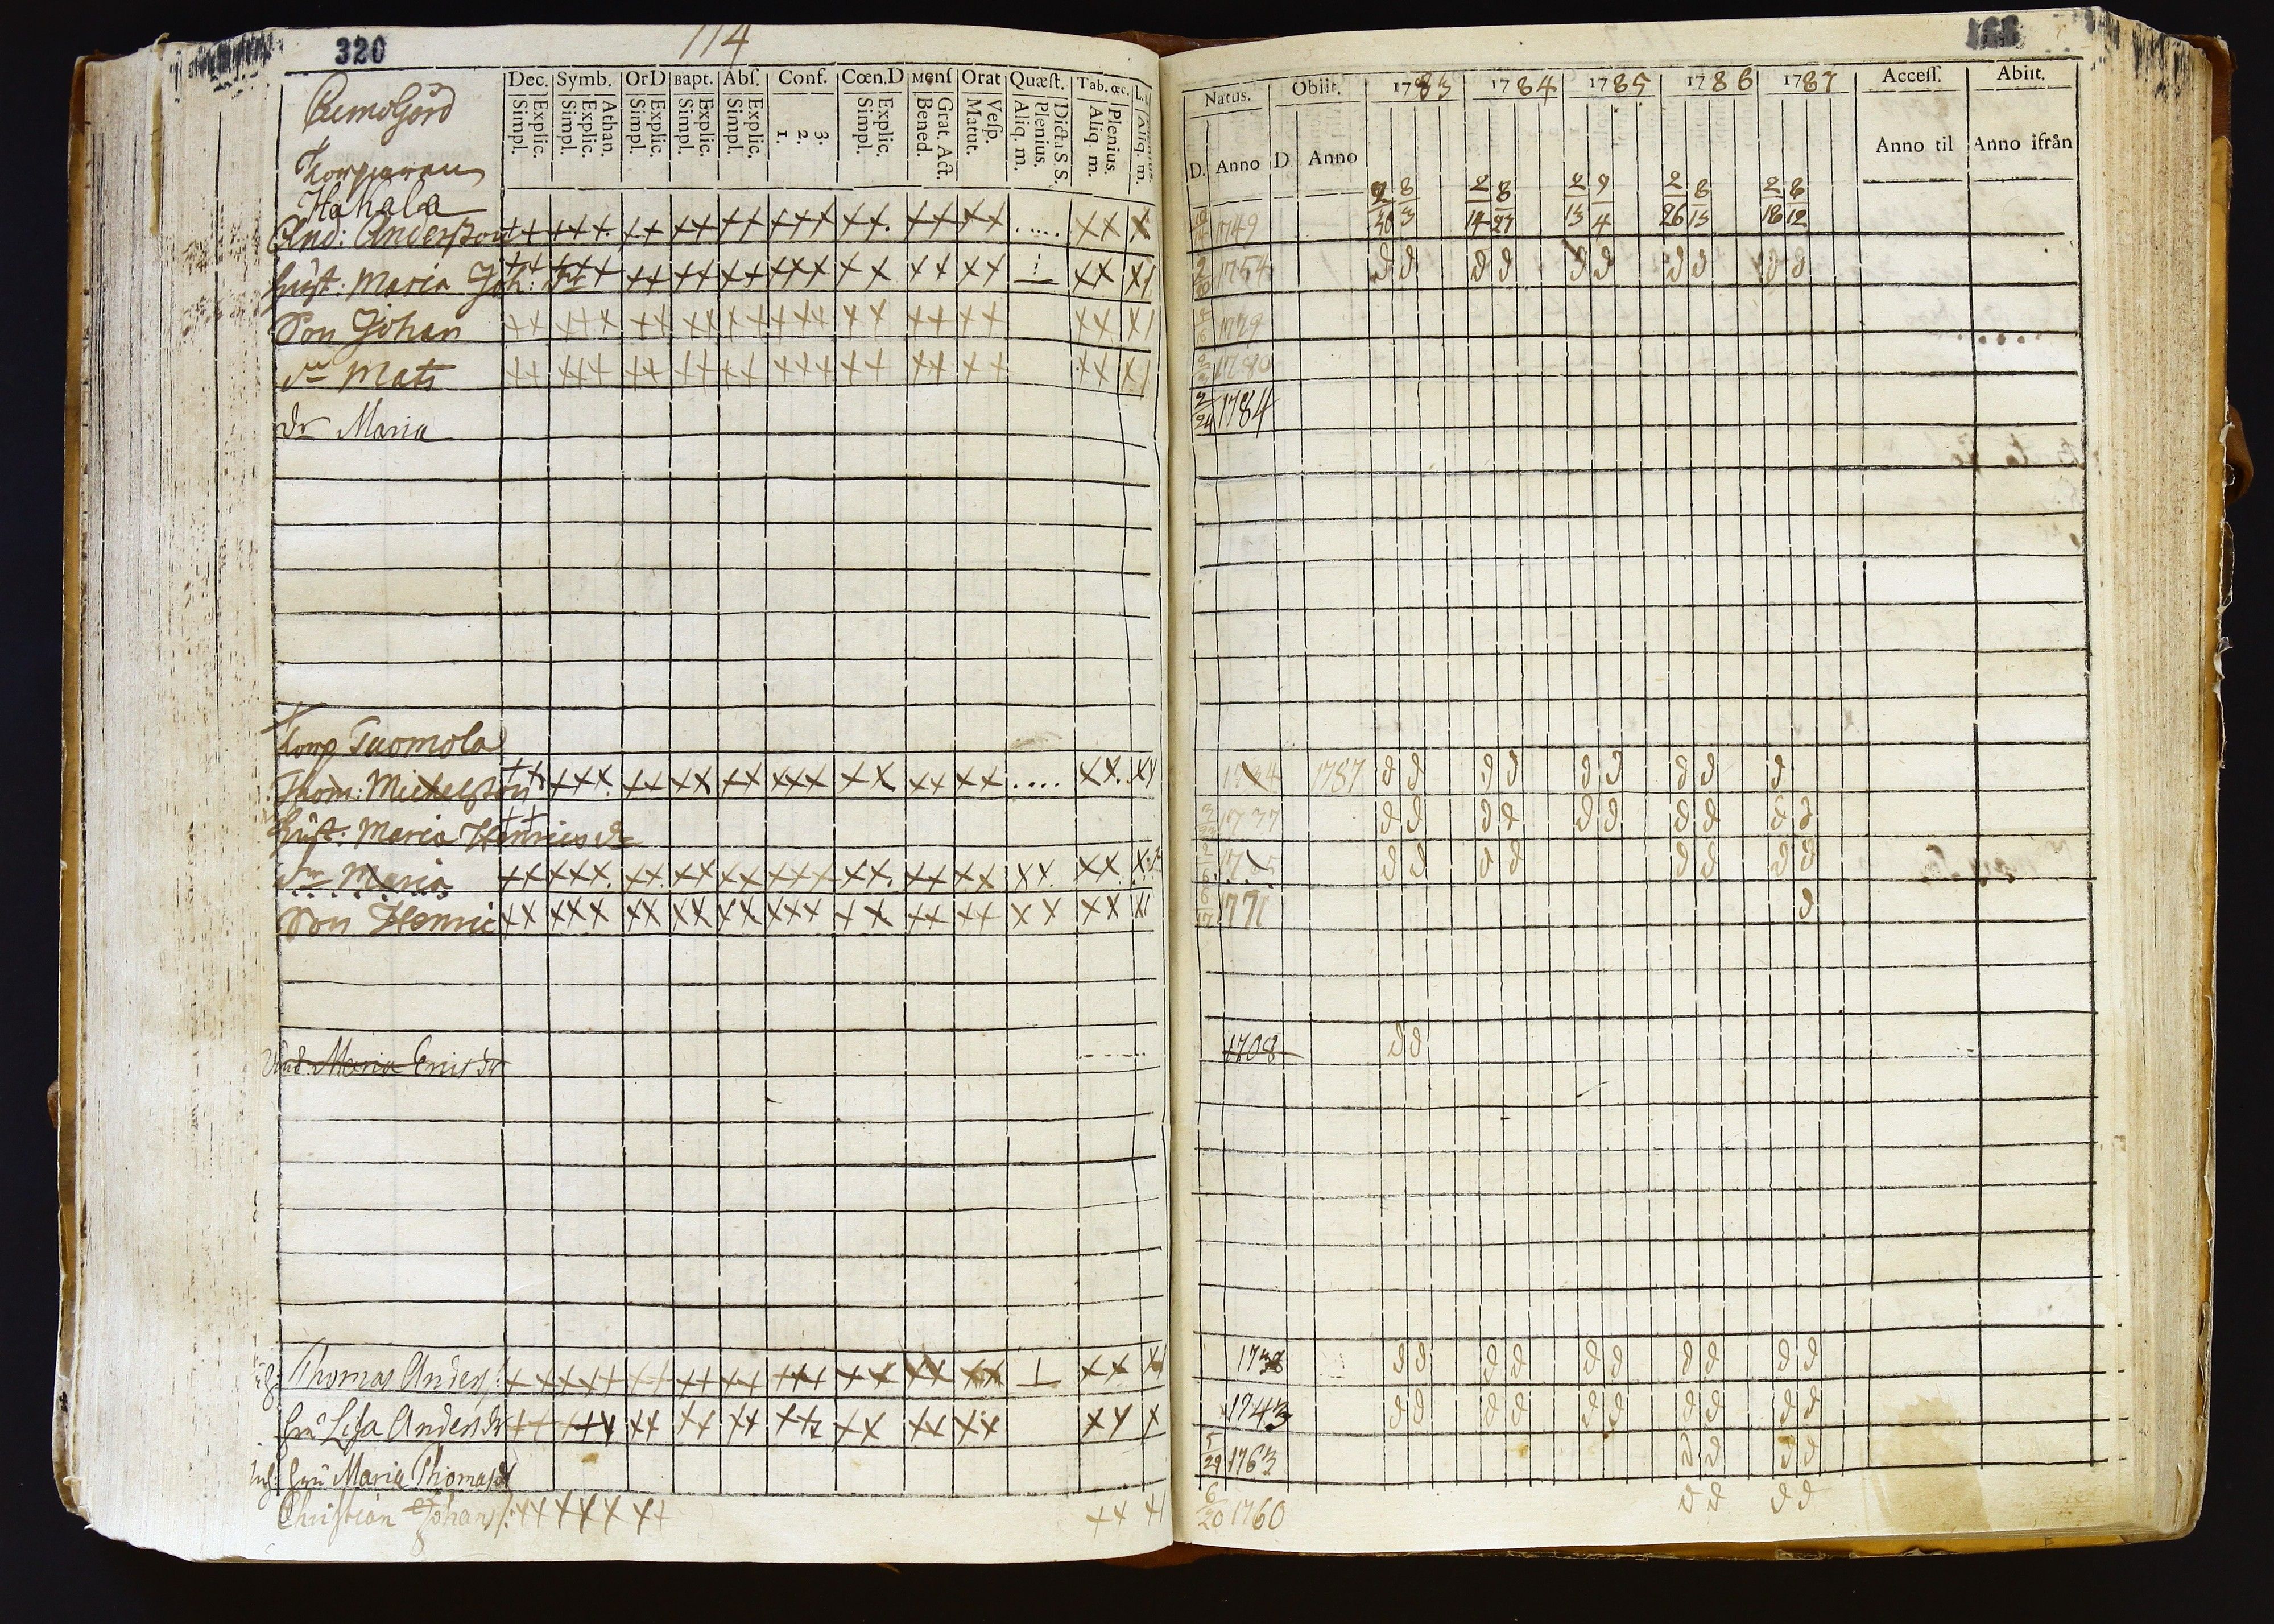 320
114
Dec. Symb. OrD Bapt. Abſ. Conf. Cœn.D Menſ Orat Quæſt. Tab. œc.
Explic. Simpl. Athan. Explic. Simpl. Explic. Simpl. Explic. Simpl. Explic. Simpl. 3. 2. 1. Explic. Simpl. Grat. Act. Bened. Veſp. Matut. Dicta S S. Plenius. Aliq. m. Plenius. Aliq. m. Aliq. m.
Torpparen
Hakala
And: Andersson
Hust: Maria Joh: dr
Son Johan
dn Mats
dr Maria
Torp Tuomola
Thom: Michelsson
Hust: Maria Henrics dr
dr Maria
Son Henric
Maria Eris dr
Thomas Anders:
hru Lisa Anders dr
hru Maria Thomasdr
Christian Johans:
Natus. Obiit. 1783 1784 1785 1786 1787 Acceſſ. Abiit.
D. Anno D Anno Anno til Anno ifrån
2/30 8/3 2/14 8/27 2/13 9/4 2/26 8/13 2/18 8/12
1749
1754 d d d d d d d d d d
1779
1780
2/24 1784
1787 d d d d d d d d d
3/23 1737 d d d d d d d d d d
d d d d d d d d
6/17 1771 d
1708 d d
1738 d d d d d d d d d d
1743 d d d d d d d d d d
5/29 1763 d d d d
6/20 1760 d d d d